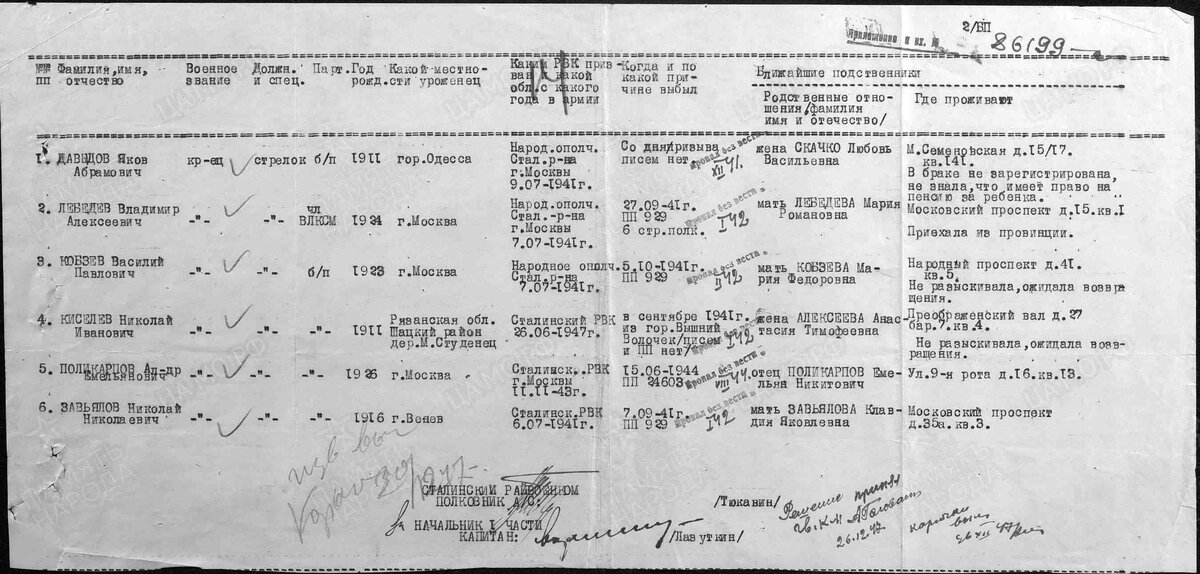 2/БП
Приложение к вх. №
86199
№№ Фамилия,имя, Военное Должн. Парт. Год Какой местно- Каким РВК приз- Когда и по Ближайшие подственники
пп отчество звание и спец. рожд. сти уроженец ван и какой какой при-
обл. с какого чине выбыл
года в армии
Родственные отно- Где проживают
шения/фамилия
имя и отечество/
1. ДАВЫДОВ Яков кр-ец стрелок б/п 1911 гор.Одесса Народ.ополч. Со дня/призыва жена СКАЧКО Любовь М.Семеновская д.15/17.
Абрамович Стал.р-на писем нет. Васильевна кв.141.
г.Москвы В браке не зарегистрирована,
9.07-1941г. не знала,что имеет право на
пенсию за ребенка.
Пропал без вести в
XII 41.
2. ЛЕБЕДЕВ Владимир -"- -"- чл 1924 г.Москва Народ.ополч. 27.09-41г. мать ЛЕБЕДЕВА Мария Московский проспект д.15.кв.1
Алексеевич ВЛКСМ Стал.р-на ПП 929 Романовна
г.Москвы 6 стр.полк. Приехала из провинции.
7.07-1941г.
Пропал без вести в
I 42
3. КОБЗЕВ Василий -"- -"- б/п 1923 г.Москва Народное ополч. 5.10-1941г. мать КОБЗЕВА Ма- Народный проспект д.41.
Павлович Стал.р-на ПП 929 рия Федоровна кв.5.
7.07-1941г. Не разыскивала,ожидала возвра
щения.
Пропал без вести в
II 42
4. КИСЕЛЕВ Николай -"- -"- -"- 1911 Рязанская обл. Сталинский РВК в сентябре 1941г. жена АЛЕКСЕЕВА Анас- Преображенский вал д.27
Иванович Шацкий район 26.06-1947г. из гор.Вышний тасия Тимофеевна бар.7.кв.4.
дер.М.Студенец Волочек/писем
и ПП нет/ Не разыскивала,ожидала возв-
ращения.
Пропал без вести в
I 42
5. ПОЛИКАРПОВ Ал-др -"- -"- -"- 1926 г.Москва Сталинск.РВК 15.06-1944 отец ПОЛИКАРПОВ Еме- Ул.9-я рота д.16.кв.13.
Емельянович г.Москвы ПП 24603 льян Никитович
11.11-43г.
Пропал без вести в
VIII 44.
6. ЗАВЬЯЛОВ Николай -"- -"- -"- 1916 г.Венев Сталинск.РВК 7.09-41г. мать ЗАВЬЯЛОВА Клав- Московский проспект
Николаевич 6.07-1941г. ПП 929 дия Яковлевна д.35а.кв.3.
Пропал без вести в
I 42
СТАЛИНСКИЙ РАЙВОЕНКОМ
ПОЛКОВНИК А/С: /Тюкавин/
НАЧАЛЬНИК I ЧАСТИ
КАПИТАН: /Лазуткин/
Решение принял
26.12.47
26 XII 47